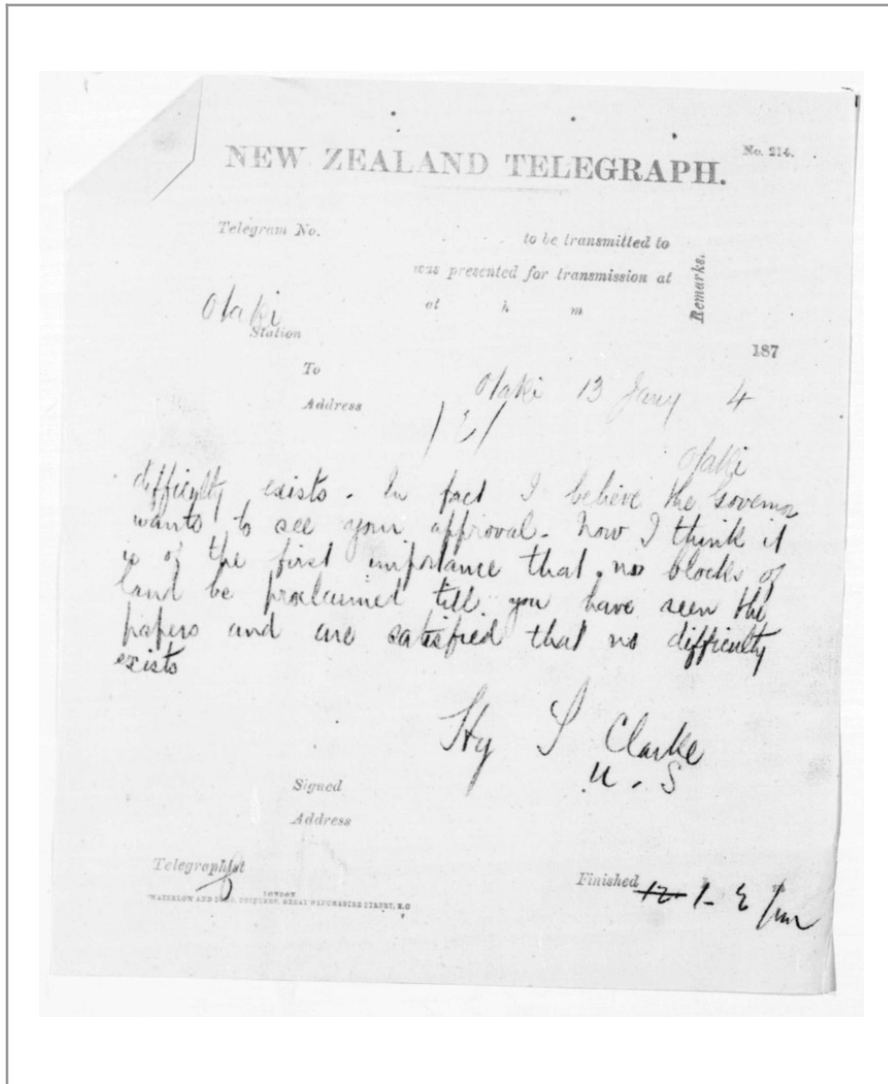 NEW ZEALAND TELEGRAPH.
No. 214.
Telegram No.
to be transmitted to
was presented for transmission at
at h m
Remarks.
Otaki
Station
187
To
Otaki 13 Jany 4
Address
Otaki
difficulty exists. In fact I believe the Governor
wants to see your approval. Now I think it
is of the first importance that no blocks of
land be proclaimed till you have seen the
papers and are satisfied that no difficulty
exists
Hy T Clarke
U.S
Signed
Address
Telegraphist
Finished
LONDON
WATERLOW AND SONS, PRINTERS, GREAT WINCHESTER STREET, E.C